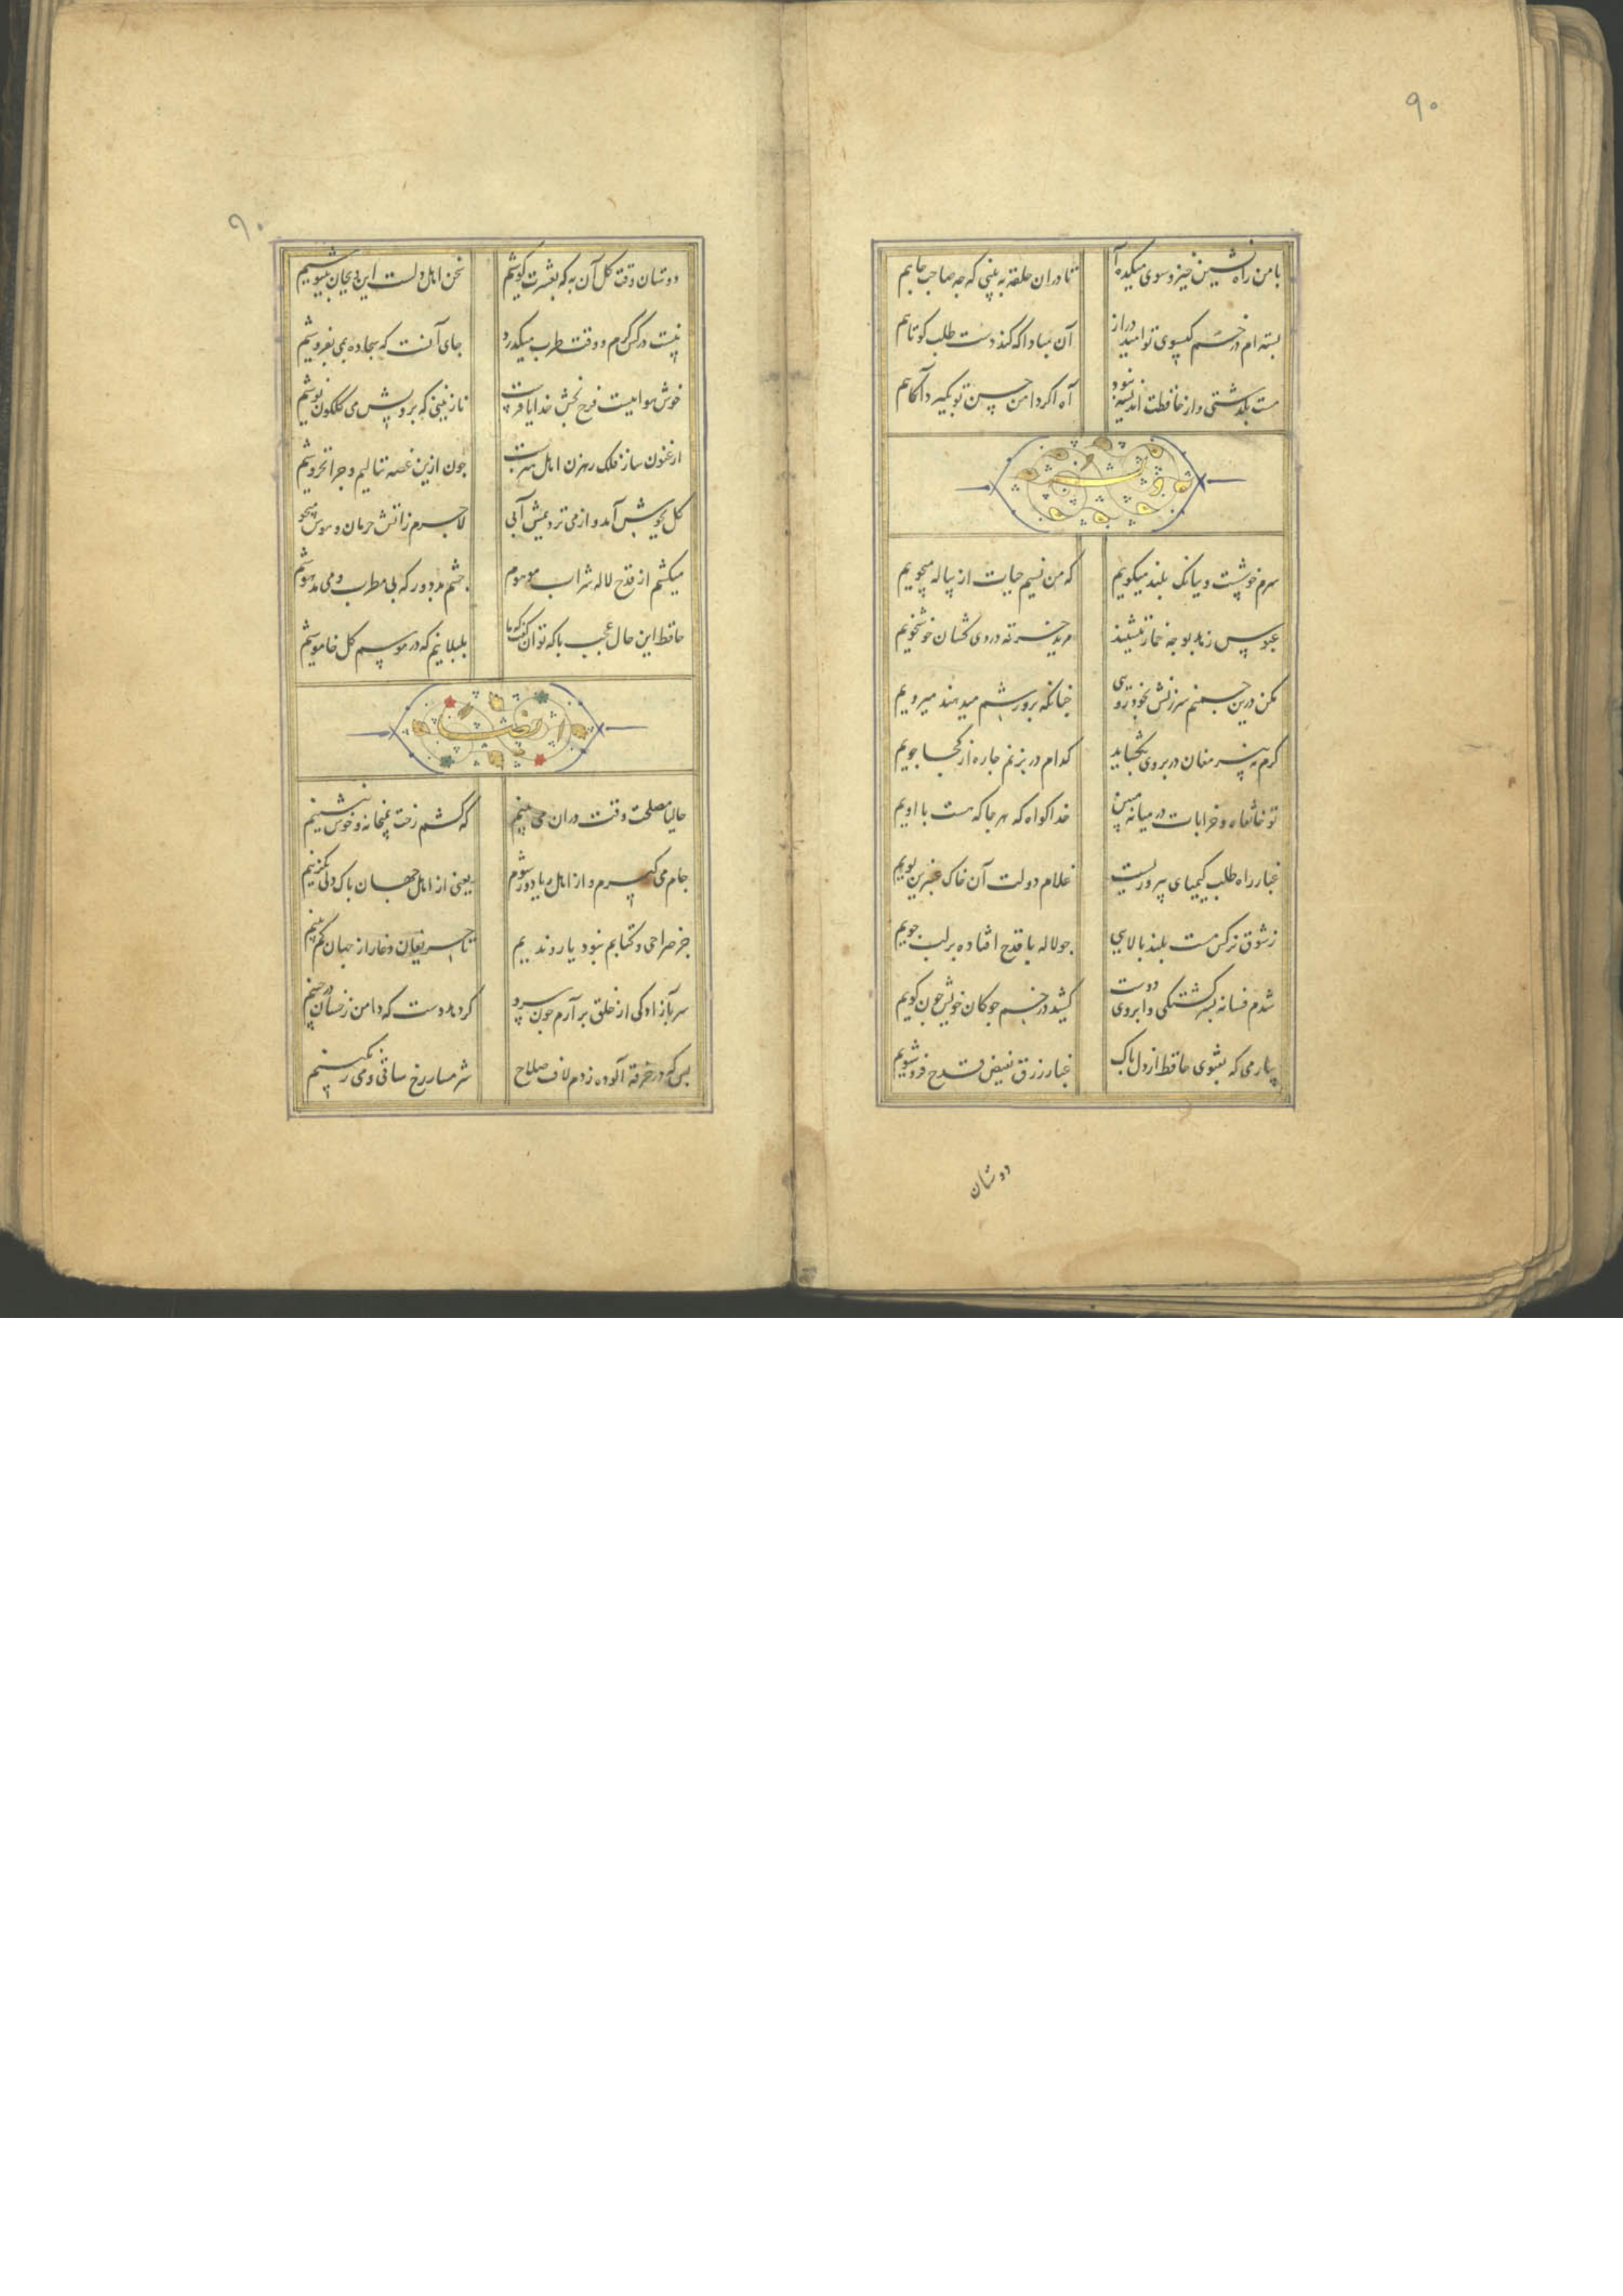 ۹۰
با من راه نشین خیز و سوی میکده آ تا دران حلقه به بینی که جه صاحب جاهم
بسته ام در خم کیسوی تو امید دراز آن مبادا که کند دست طلب کوتاهم
مست بکذشتی و از حافظت اندیشه نبود آه اکر دامن حسن تو بکیرد آهم
سرم خوشست و ببانک بلند میکویم که من نسیم حیات از پیاله میجویم
عبوس زهد بوجه خمار ننشیند مرید خرقه دردی کشان خوشخویم
مکن درین جمنم سرزنش بخودرویی جنانکه برورشم میدهند میرویم
کرم نه پیر مغان در بروی بکشاید کدام در بزنم جاره از کجا جویم
تو خانقاه و خرابات در میانه مبین خدا کواه که هر جا که هست با اویم
غبار راه طلب کیمیای بهروزیست غلام دولت آن خاک عنبرین بویم
ز شوق نرکس مست بلند بالایی جو لاله با قدح افتاده بر لب جویم
شدم فسانه بسرکشتکی و ابروی دوست کشید در خم جوکان خویش جون کویم
بیار می که بفتوی حافظ از دل باک غبار زرق بفیض قدح فروشویم
دوستان
۹۰
دوستان وقت کل آن به که بعشرت کوشیم سخن اهل دلست این و بجان بنیوشیم
نیست در کس کرم و وقت طرب میکذرد جاره آنست که سجاده بمی بفروشیم
خوش هواییست فرح بخش خدایا بفرست نازنینی که برویش می کلکون نوشیم
ارغنون ساز فلک رهزن اهل هنرست جون ازین غصه ننالیم و جرا نخروشیم
کل بجوش آمد و از می نزدیمش آبی لاجرم زآتش حرمان و هوس میجوشیم
میکشیم از قدح لاله شراب موهوم جشم بد دور که بی مطرب و می مدهوشیم
حافظ این حال عجب با که توان کفت که ما بلبلانیم که در موسم کل خاموشیم
ایضا
حالیا مصلحت وقت دران می بینم که کشم رخت بمیخانه و خوش بنشینم
جام می کیرم و از اهل ریا دور شوم یعنی از اهل جهان باک دلی بکزینم
جز صراحی و کتابم نبود یار و ندیم تا حریفان دغا را ز جهان کم بینم
سر بآزادکی از خلق برآرم جون سرو کر دهد دست که دامن ز خسان درجینم
بس که در خرقه آلوده زدم لاف صلاح شرمسار رخ ساقی و می رنکینم